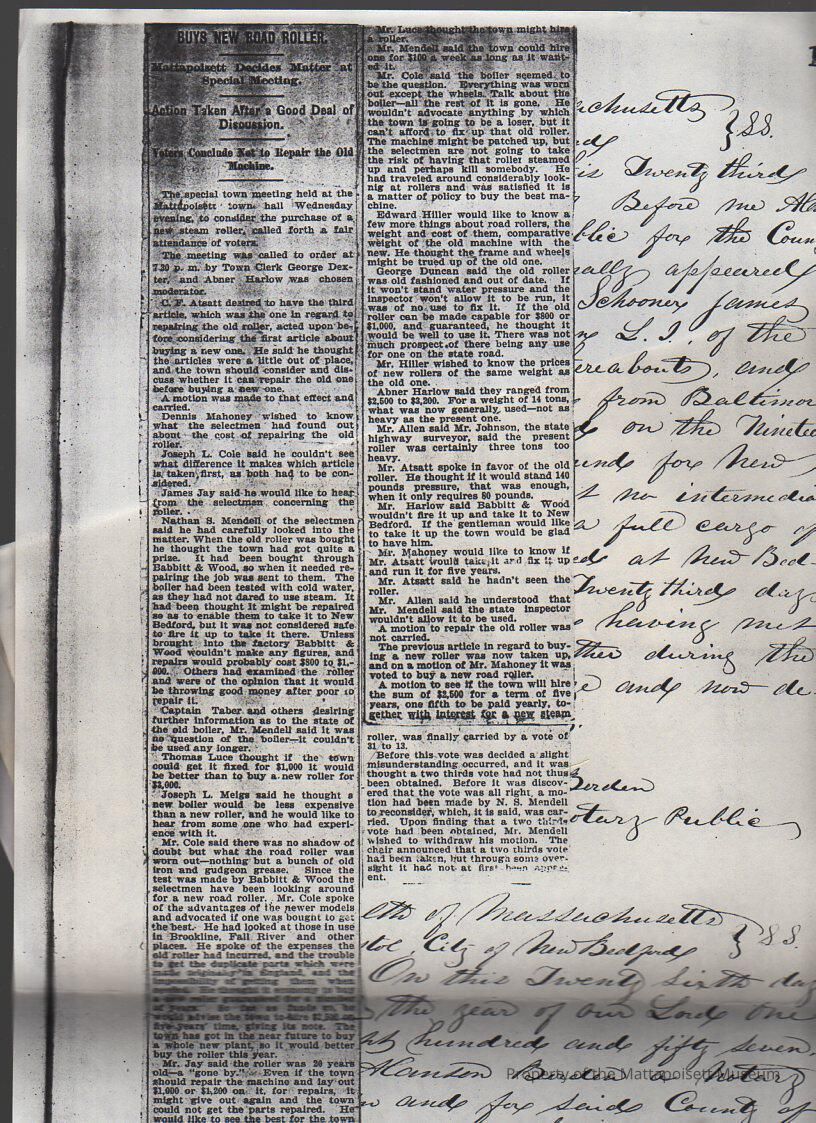 BUYS NEW ROAD ROLLER.
Mattapoisett Decides Matter at
Special Meeting.
Action Taken After a Good Deal of
Discussion.
Voters Conclude Not to Repair the Old
Machine.
The special town meeting held at the
Mattapoisett town hall Wednesday
evening, to consider the purchase of a
new steam roller, called forth a fair
attendance of voters.
The meeting was called to order at
7.30 p. m. by Town Clerk George Dex-
ter, and Abner Harlow was chosen
moderator.
C. F. Atsatt desired to have the third
article, which was the one in regard to
repairing the old roller, acted upon be-
fore considering the first article about
buying a new one. He said he thought
the articles were a little out of place,
and the town should consider and dis-
cuss whether it can repair the old one
before buying a new one.
A motion was made to that effect and
carried.
Dennis Mahoney wished to know
what the selectmen had found out
about the cost of repairing the old
roller.
Joseph L. Cole said he couldn't see
what difference it makes which article
is taken first, as both had to be con-
sidered.
James Jay said he would like to hear
from the selectmen concerning the
roller.
Nathan S. Mendell of the selectmen
said he had carefully looked into the
matter. When the old roller was bought
he thought the town had got quite a
prize. It had been bought through
Babbitt & Wood, so when it needed re-
pairing the job was sent to them. The
boiler had been tested with cold water,
as they had not dared to use steam. It
had been thought it might be repaired
so as to enable them to take it to New
Bedford, but it was not considered safe
to fire it up to take it there. Unless
brought into the factory Babbitt &
Wood wouldn't make any figures, and
repairs would probably cost $800 to $1,-
000. Others had examined the roller
and were of the opinion that it would
be throwing good money after poor to
repair it.
Captain Taber and others desiring
further information as to the state of
the old boiler, Mr. Mendell said it was
no question of the boiler—it couldn't
be used any longer.
Thomas Luce thought if the town
could get it fixed for $1,000 it would
be better than to buy a new roller for
$3,000.
Joseph L. Meigs said he thought a
new boiler would be less expensive
than a new roller, and he would like to
hear from some one who had experi-
ence with it.
Mr. Cole said there was no shadow of
doubt but what the road roller was
worn out—nothing but a bunch of old
iron and gudgeon grease. Since the
test was made by Babbitt & Wood the
selectmen have been looking around
for a new road roller. Mr. Cole spoke
of the advantages of the newer models
and advocated if one was bought to get
the best. He had looked at those in use
in Brookline, Fall River and other
places. He spoke of the expenses the
old roller had incurred, and the trouble
to get the duplicate parts which were
made England, and the
impossibility of getting them when
would advise the town to hire
five years' time, giving its note. The
town has got in the near future to buy
a whole new plant, so it would better
buy the roller this year.
Mr. Jay said the roller was 20 years
old—a "gone by." Even if the town
should repair the machine and lay out
$1,000 or $1,200 on it, for repairs, it
might give out again and the town
could not get the parts repaired. He
would like to see the best for the town
Mr. Luce thought the town might hire
a roller.
Mr. Mendell said the town could hire
one for $100 a week as long as it want-
ed it.
Mr. Cole said the boiler seemed to
be the question. Everything was worn
out except the wheels. Talk about the
boiler—all the rest of it is gone. He
wouldn't advocate anything by which
the town is going to be a loser, but it
can't afford to fix up that old roller.
The machine might be patched up, but
the selectmen are not going to take
the risk of having that roller steamed
up and perhaps kill somebody. He
had traveled around considerably look-
nig at rollers and was satisfied it is
a matter of policy to buy the best ma-
chine.
Edward Hiller would like to know a
few more things about road rollers, the
weight and cost of them, comparative
weight of the old machine with the
new. He thought the frame and wheels
might be trued up of the old one.
George Duncan said the old roller
was old fashioned and out of date. If
it won't stand water pressure and the
inspector won't allow it to be run, it
was of no use to fix it. If the old
roller can be made capable for $800 or
$1,000, and guaranteed, he thought it
would be well to use it. There was not
much prospect of there being any use
for one on the state road.
Mr. Hiller wished to know the prices
of new rollers of the same weight as
the old one.
Abner Harlow said they ranged from
$2,500 to $3,200. For a weight of 14 tons,
what was now generally used—not as
heavy as the present one.
Mr. Allen said Mr. Johnson, the state
highway surveyor, said the present
roller was certainly three tons too
heavy.
Mr. Atsatt spoke in favor of the old
roller. He thought if it would stand 140
pounds pressure, that was enough,
when it only requires 80 pounds.
Mr. Harlow said Babbitt & Wood
wouldn't fire it up and take it to New
Bedford. If the gentleman would like
to take it up the town would be glad
to have him.
Mr. Mahoney would like to know if
Mr. Atsatt would take it and fix it up
and run it for five years.
Mr. Atsatt said he hadn't seen the
roller.
Mr. Allen said he understood that
Mr. Mendell said the state inspector
wouldn't allow it to be used.
A motion to repair the old roller was
not carried.
The previous article in regard to buy-
ing a new roller was now taken up,
and on a motion of Mr. Mahoney it was
voted to buy a new road roller.
A motion to see if the town will hire
the sum of $2,500 for a term of five
years, one fifth to be paid yearly, to-
gether with interest for a new steam
roller, was finally carried by a vote of
31 to 13.
Before this vote was decided a slight
misunderstanding occurred, and it was
thought a two thirds vote had not thus
been obtained. Before it was discov-
ered that the vote was all right, a mo-
tion had been made by N. S. Mendell
to reconsider, which, it is said, was car-
ried. Upon finding that a two thirds
vote had been obtained, Mr. Mendell
wished to withdraw his motion. The
chair announced that a two thirds vote
had been taken, but through some over-
sight it had not at first been appar-
ent.
achusetts } SS.
is Twenty third
Before me
blic for the Coun
eally appeared
Schooner James
L. I., of the
ereabouts, and
from Baltimor
on the Ninetee
for New
no intermedia
a full cargo of
at New Bed-
Twenty third day
having met
ther during the
and now de-
Borden
otary Public
lth of Massachusetts } SS.
City of New Bedford
On this Twenty sixth day
the year of our Lord one
hundred and fifty seven,
Borden a Notary
and for said County of
Property of the Mattapoisett Museum